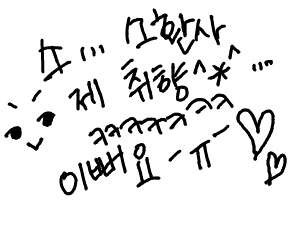 소... 소환사
제 취향^*^...
ㅋㅋㅋㅋㅋㅋㅋ
이뻐요ㅡㅠㅡ